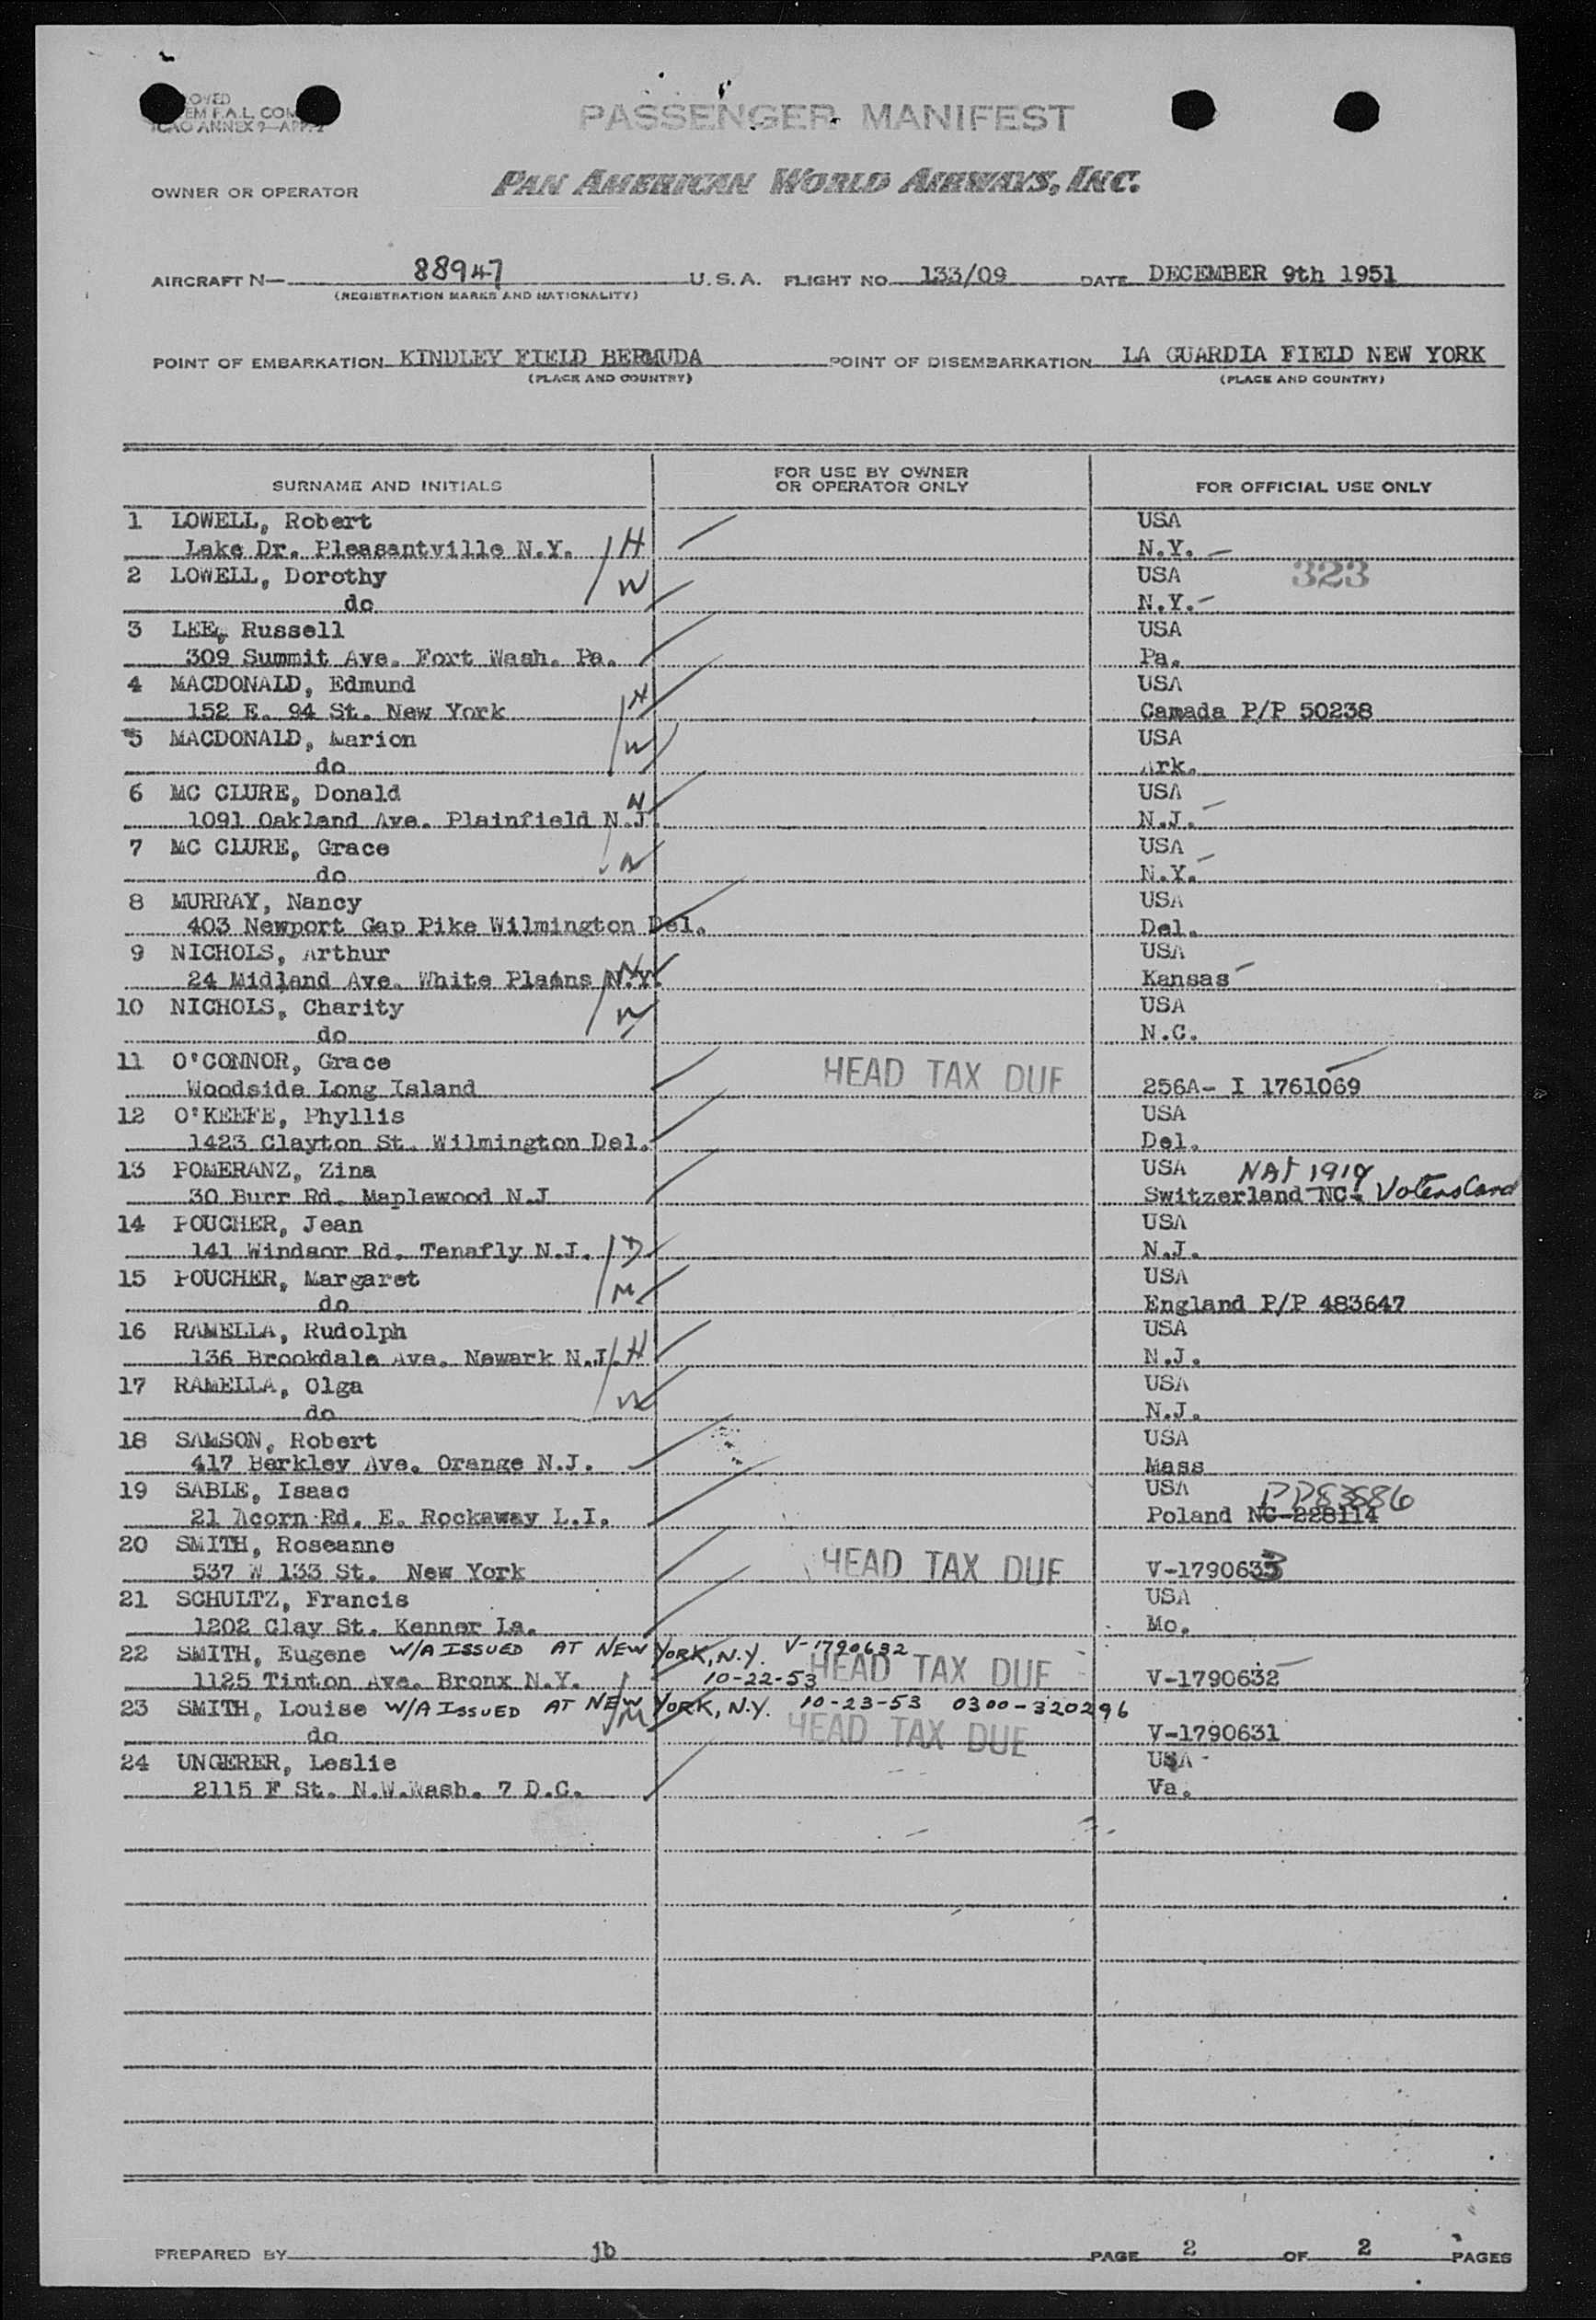 PASSENGER MANIFEST
OWNER OR OPERATOR PAN AMERICAN WORLD AIRWAYS, INC.
AIRCRAFT N— 88947 U.S.A. FLIGHT NO. 133/09 DATE DECEMBER 9th 1951
(REGISTRATION MARKS AND NATIONALITY)
POINT OF EMBARKATION KINDLEY FIELD BERMUDA POINT OF DISEMBARKATION LA GUARDIA FIELD NEW YORK
(PLACE AND COUNTRY) (PLACE AND COUNTRY)
SURNAME AND INITIALS FOR USE BY OWNER OR OPERATOR ONLY FOR OFFICIAL USE ONLY
1 LOWELL, Robert USA
Lake Dr. Pleasantville N.Y. H N.Y.
2 LOWELL, Dorothy W USA 323
do N.Y.
3 LEE, Russell USA
309 Summit Ave. Fort Wash. Pa. Pa.
4 MACDONALD, Edmund H USA
152 E. 94 St. New York Camada P/P 50238
5 MACDONALD, Marion W USA
do Ark.
6 MC CLURE, Donald H USA
1091 Oakland Ave. Plainfield N.J. N.J.
7 MC CLURE, Grace W USA
do N.Y.
8 MURRAY, Nancy USA
403 Newport Gap Pike Wilmington Del. Del.
9 NICHOLS, Arthur USA
24 Midland Ave. White Plains N.Y. H Kansas
10 NICHOLS, Charity W USA
do N.C.
11 O'CONNOR, Grace HEAD TAX DUE
Woodside Long Island 256A- I 1761069
12 O'KEEFE, Phyllis USA
1423 Clayton St. Wilmington Del. Del.
13 POMERANZ, Zina USA NAT 1919
30 Burr Rd. Maplewood N.J Switzerland NC- Voters Card
14 POUCHER, Jean USA
141 Windsor Rd. Tenafly N.J. D N.J.
15 POUCHER, Margaret M USA
do England P/P 483647
16 RAMELLA, Rudolph USA
136 Brookdale Ave. Newark N.J. H N.J.
17 RAMELLA, Olga W USA
do N.J.
18 SAMSON, Robert USA
417 Berkley Ave. Orange N.J. Mass
19 SABLE, Isaac USA PP83586
21 Acorn Rd. E. Rockaway L.I. Poland NC-228114
20 SMITH, Roseanne HEAD TAX DUE
537 W 133 St. New York V-1790633
21 SCHULTZ, Francis USA
1202 Clay St. Kenner La. Mo.
22 SMITH, Eugene W/A ISSUED AT NEW YORK, N.Y. V-1790632
1125 Tinton Ave. Bronx N.Y. 10-22-53 HEAD TAX DUE V-1790632
23 SMITH, Louise W/A ISSUED AT NEW YORK, N.Y. 10-23-53 0300-320296
do M HEAD TAX DUE V-1790631
24 UNGERER, Leslie USA
2115 F St. N.W.Wash. 7 D.C. Va.
PREPARED BY jb PAGE 2 OF 2 PAGES